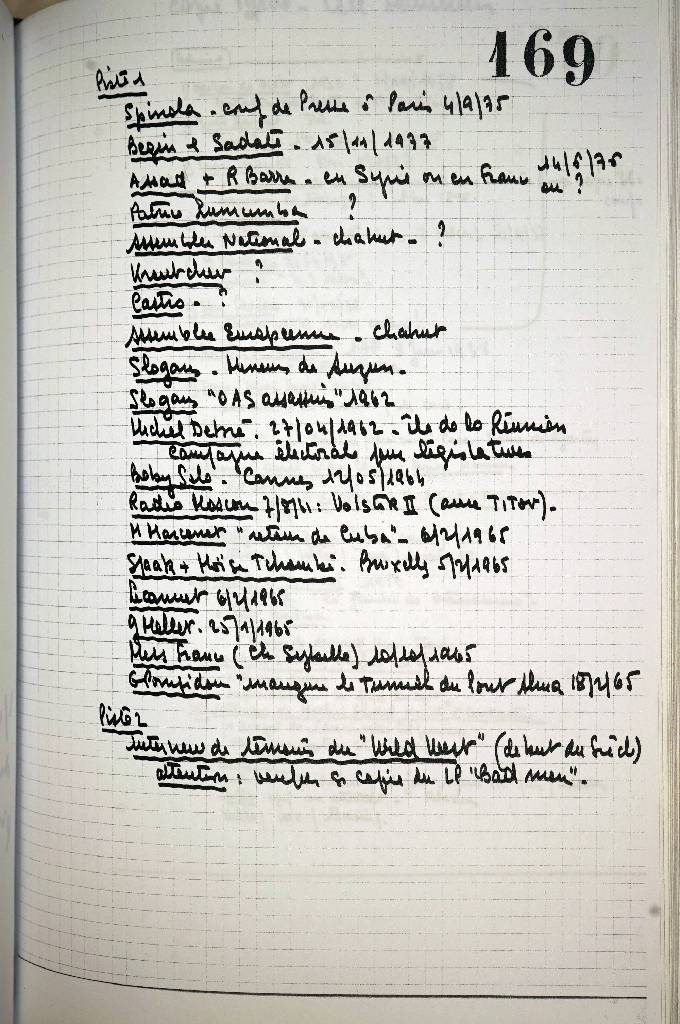 169
Piste 1
Spinola - conf de Presse à Paris 4/9/75
Begin & Sadate - 15/11/1977
Assad + R Barre - en Syrie ou en France 14/6/76
ou ?
Patrice Lumumba ?
Assemblée National - chahut - ?
Kroutchev ?
Castro - ?
Assemblée Européenne - chahut
Slogans - Mineurs de
Slogans "OAS assassins" 1962
Michel Debré. 27/04/1962 - île de la Réunion
campagne électorale pour législatives
Boby Solo - Cannes 12/05/1964
Radio Moscou 7/8/61: VOISTOK II (avec TITOV).
M "retour de Cuba" - 6/2/1965
Spaak + Moïse Tchombé. Bruxelles 5/2/1965
Lecanuet 6/2/1965
25/1/1965
Mess France (Ch 10/10/1965
G Pompidou "inaugure le Tunnel du Pont Alma 18/2/65
Piste 2
interview de témoins du "Wild West" (debut du Siècl)
attention: verifier si copie du LP "Bad men".